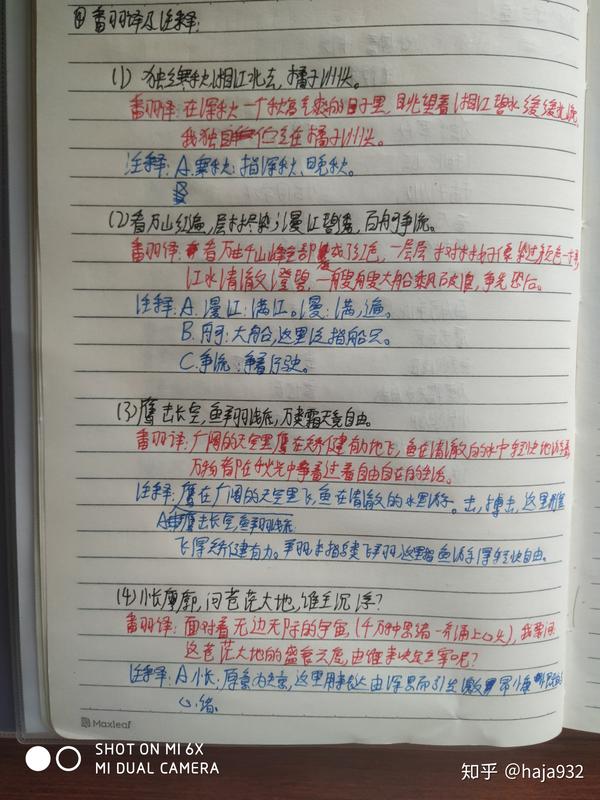 ④翻译及注释:
(1) 独立寒秋,湘江北去,橘子洲头。
翻译:在深秋一个秋高气爽的日子里,眺望着湘江碧水缓缓北流,
我独自伫立在橘子洲头。
注释: A.寒秋:指深秋、晚秋。
B
(2)看万山红遍,层林尽染;漫江碧透,百舸争流。
翻译:看万千山峰全都变成了红色,一层层树林好像染过颜色一样,
江水清澈澄碧,一艘艘大船乘风破浪,争先恐后。
注释: A. 漫江:满江。漫:满,遍。
B. 舸:大船,这里泛指船只。
C.争流:争着行驶。
(3)鹰击长空,鱼翔浅底,万类霜天竞自由。
翻译:广阔的天空里鹰在矫健有力地飞,鱼在清澈的水中轻快地游着
万物都在秋光中争着过着自由自在的生活。
注释:鹰在广阔的天空里飞,鱼在清澈的水里游。击,搏击,这里形容
A 鹰击长空,鱼翔浅底:
飞得矫健有力。翔本指鸟类飞翔,这里指鱼游得轻快自由。
(4)怅寥廓,问苍茫大地,谁主沉浮?
翻译:面对着无边无际的宇宙,(千万种思绪一齐涌上心头),我要问:
这苍茫大地的盛衰兴废,由谁来决定主宰呢?
注释: A.怅:原意为失意,这里用来表达由深思而引发激昂慷慨的
心绪。
Maxleaf
SHOT ON MI 6X
MI DUAL CAMERA
知乎 @haja932